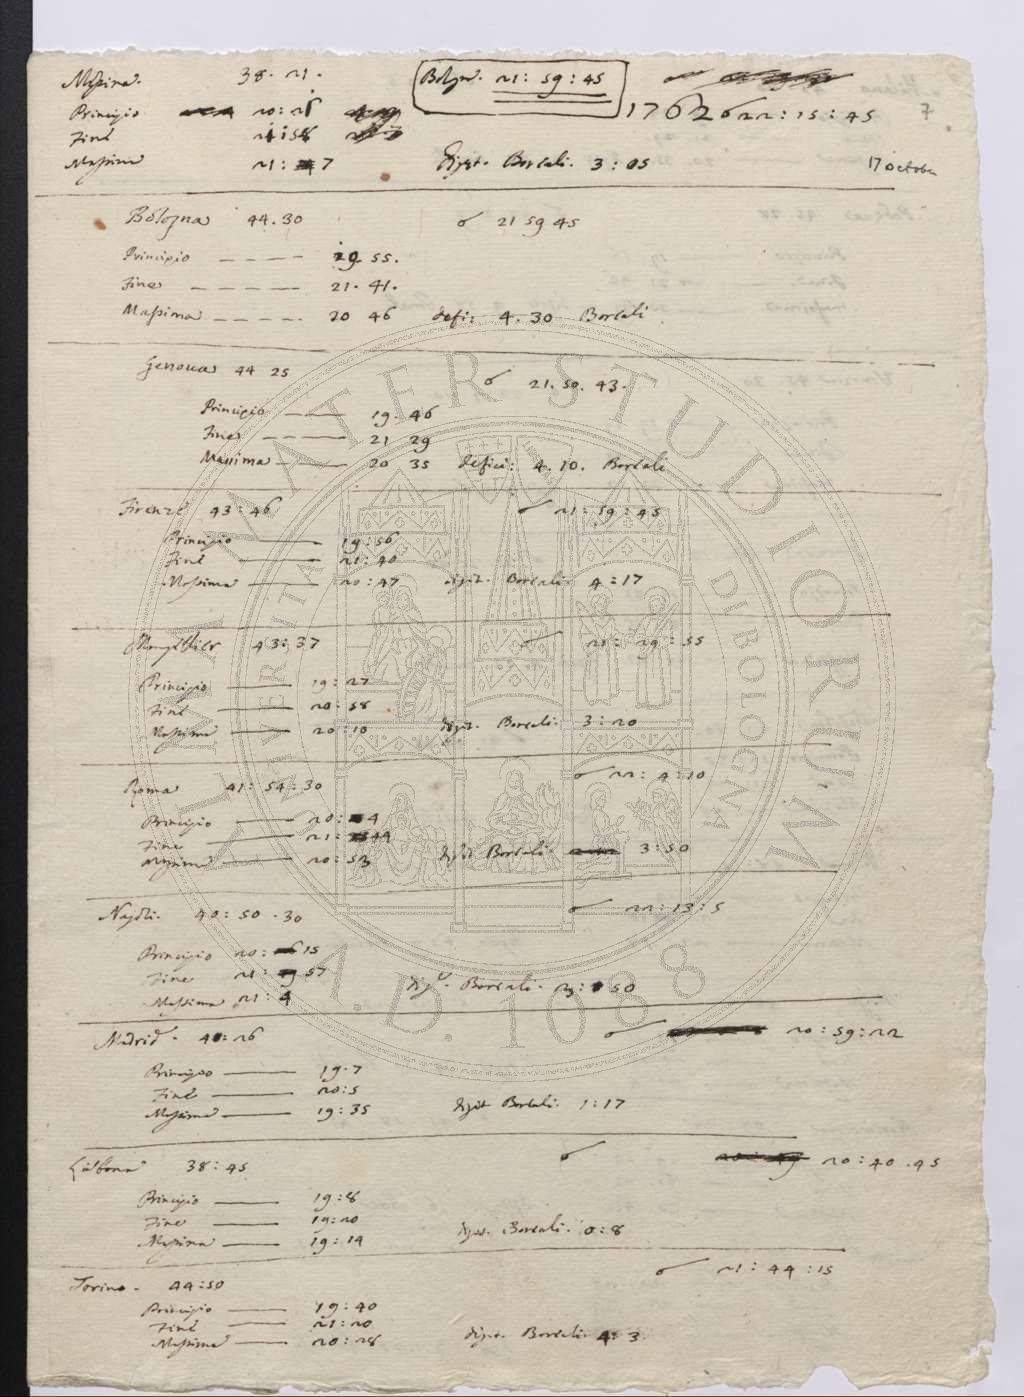 Messina. 38. 21.
Bologn. 21: 59: 45
1762 ☌ 22: 15: 45
7
Principio 20: 26
Fine 21: 58
Massima 21: 7 digit. Boreali. 3: 05
17 october
Bologna 44. 30 ☌ 21 59 45
Principio 19 55.
Fine 21. 41.
Massima 20 46 defi: 4. 30 Boreali
Genoua 44 25 ☌ 21. 50. 43.
Principio 19. 46
Fine 21 29
Massima 20 35 defici: 4. 10. Boreali
Firenze 43: 46 ☌ 21: 59: 45
Principio 19: 56
Fine 21: 40
Massima 20: 47 digit. Boreali. 4: 17
43: 37 ☌ 21: 29: 55
Principio 19: 27
Fine 20: 58
Massima 20: 10 digit. Boreali. 3: 20
Roma 41: 54: 30 ☌ 22: 4: 10
Principio 20: 4
Fine 21: 44
Massima 20: 53 digit Boreali. 3: 50
Napoli. 40: 50. 30 ☌ 22: 13: 5
Principio 20: 15
Fine 21: 57
Massima 21: 4 dig. Boreali. 50
Madrid. 40: 26 ☌ 20: 59: 22
Principio 19. 7
Fine 20: 5
Massima 19: 35 digit Boreali. 1: 17
Lisbona 38: 45 ☌ 20: 40. 45
Principio 19: 8
Fine 19: 20
Massima 19: 14 digit. Boreali. 0: 8
Torino. 44: 50 ☌ 21: 44: 15
Principio 19: 40
Fine 21: 20
Massima 20: 28 digit. Boreali. 4: 3
ALMA MATER STUDIORUM
UNIVERSITÀ DI BOLOGNA
A.D. 1088